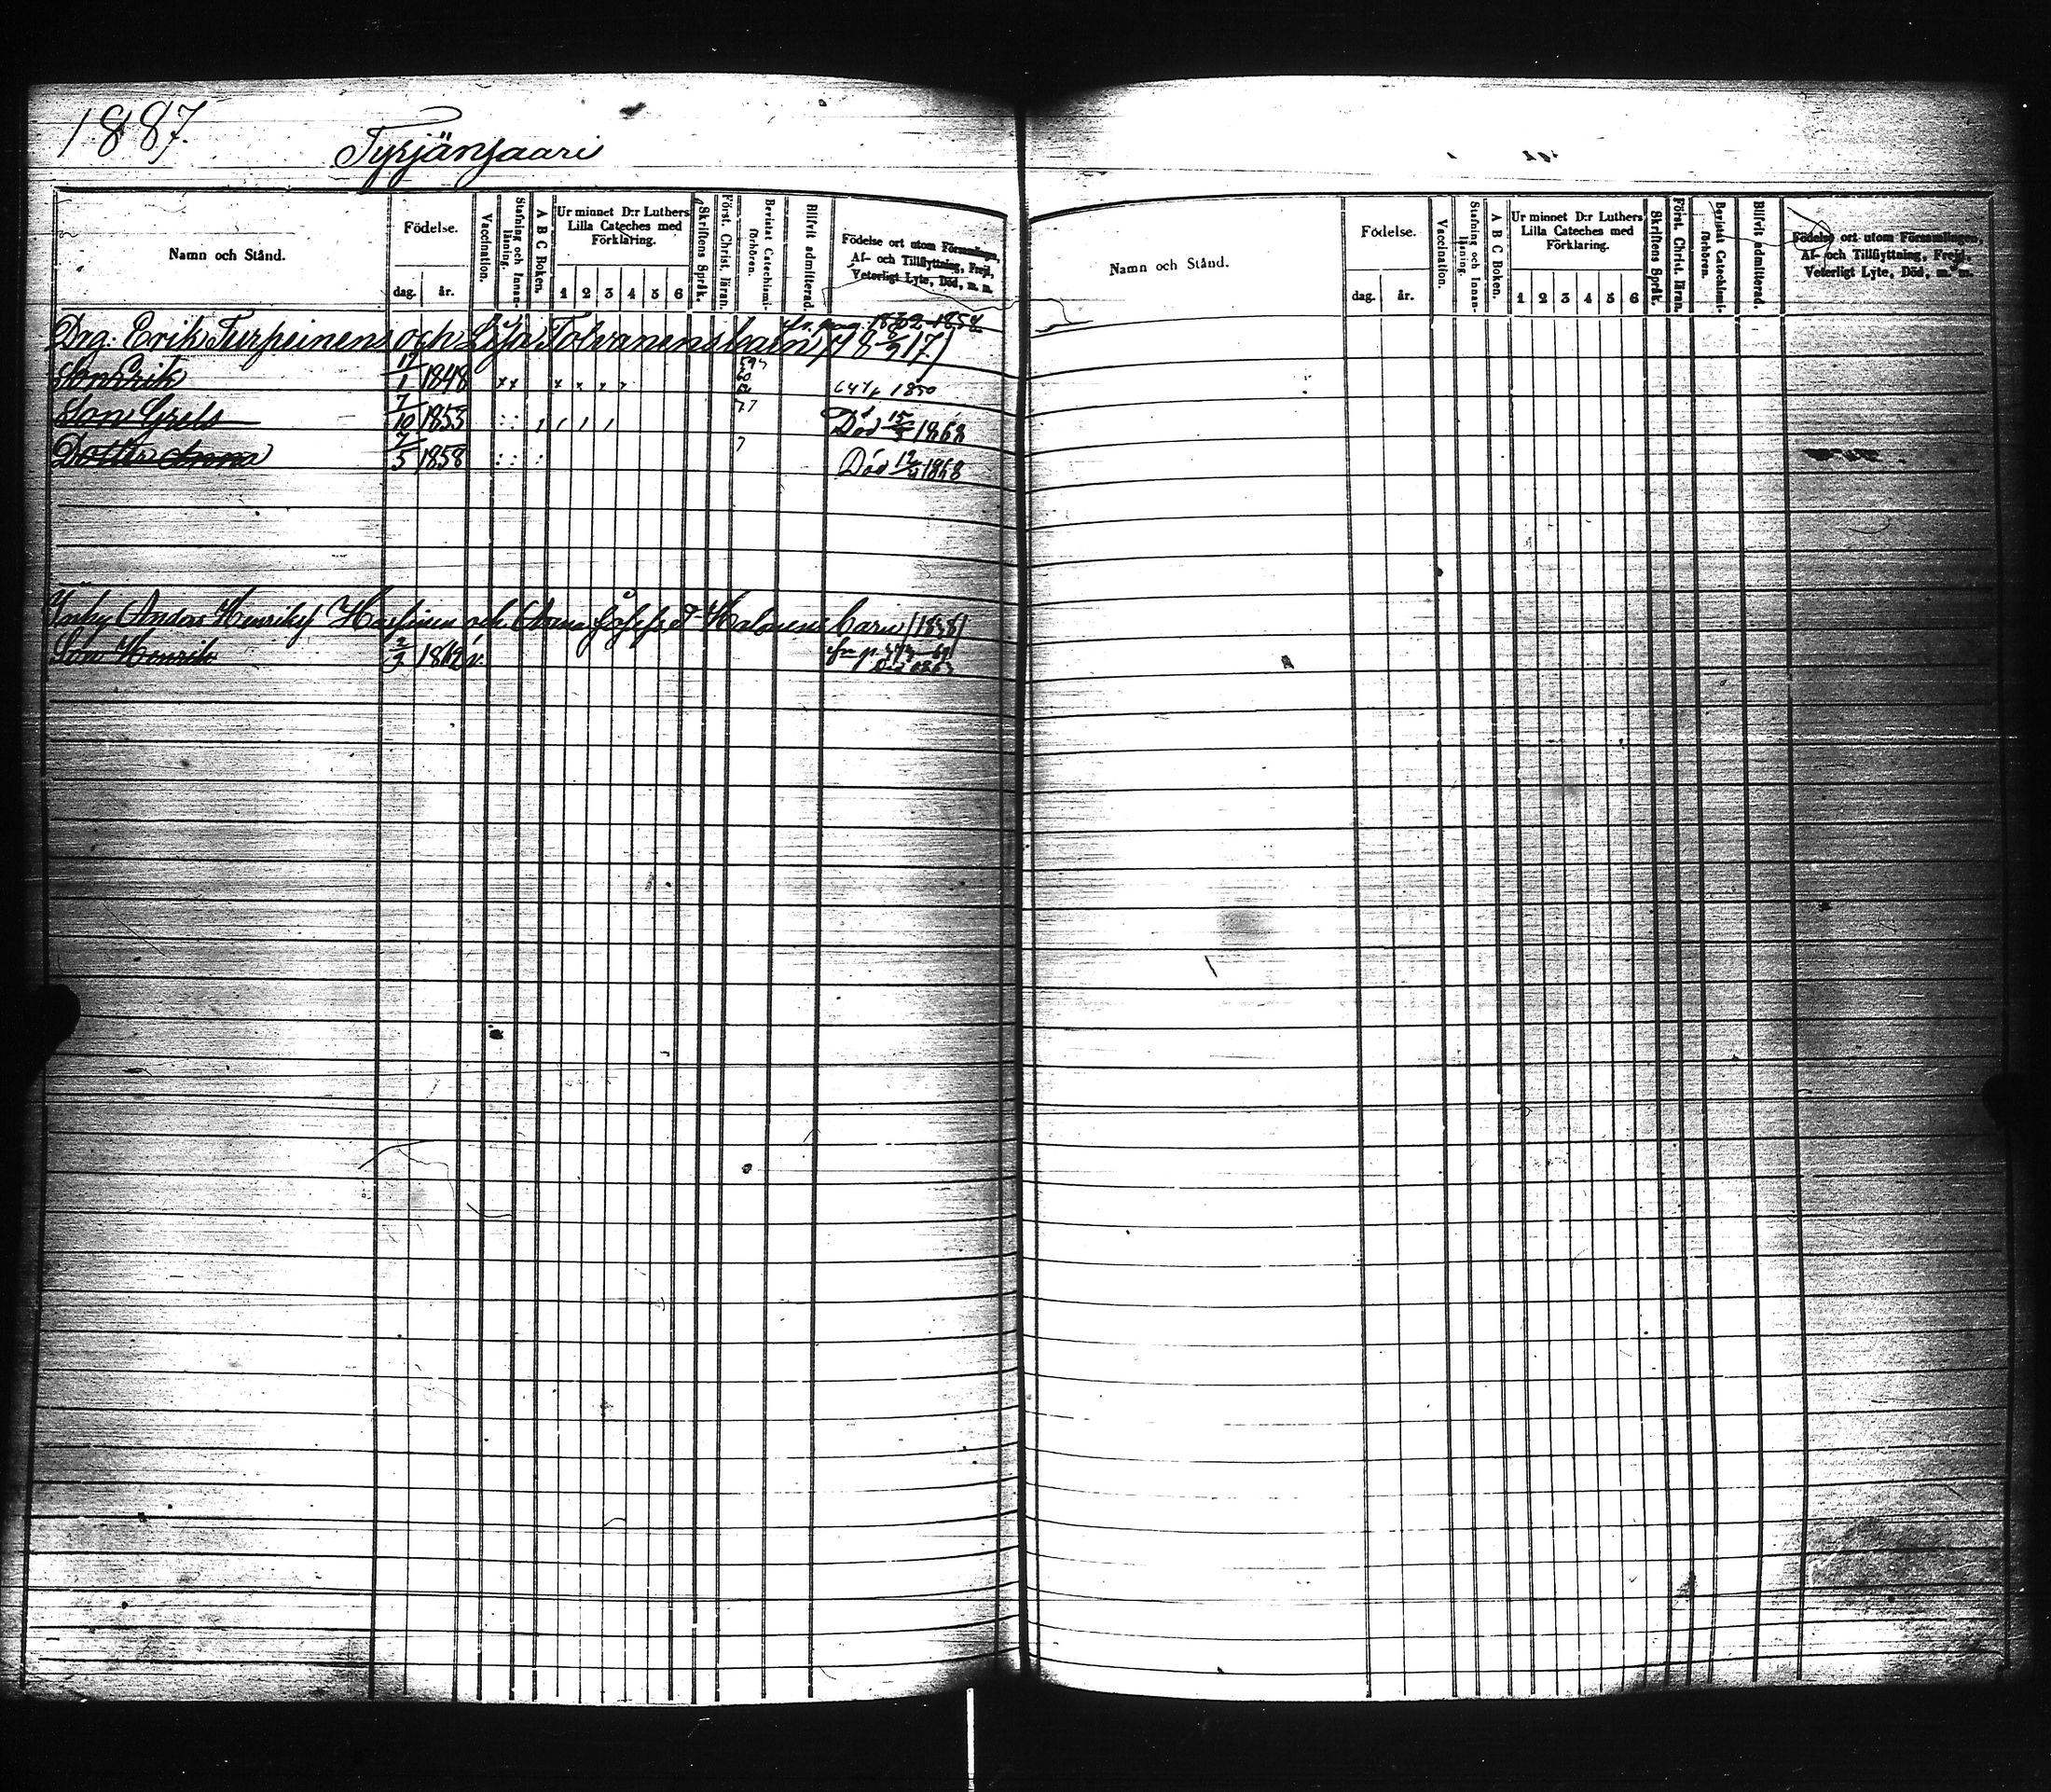 1887.
Tyrjänsaari
Namn och Stånd.
Födelse.
dag.
år.
Vaccination.
Stafning och Innanläsning.
A B C Boken.
Ur minnet D:r Luthers
Lilla Cateches med
Förklaring.
1 2 3 4 5 6
Skriftens Språk.
Först. Christ. läran.
Bevistat Catechismiförhören.
Blifvit admitterad
Födelse ort utom Församlingen,
Af- och Tillflyttning, Frejd,
Veterligt Lyte, Död, m. m.
Drg. Erik Turpeinens och Lisa Tolvanens barn
Son Erik 12/1 1848 x x x x x x 60 1850
Son Grels 7/10 1853 Död 15/5 1868
Dotter Anna 7/5 1858 7 Död 1868
Inhy. Anders Henriks och Anna Josefs D. Halonens barn /1838/
Son Henrik 2/3 1862 v.
Namn och Stånd.
Födelse.
dag.
år.
Vaccination.
Stafning och Innanläsning.
A B C Boken.
Ur minnet D:r Luthers
Lilla Cateches med
Förklaring.
1 2 3 4 5 6
Skriftens Språk.
Först. Christ. läran.
Bevistat Catechismiförhören.
Blifvit admitterad.
Födelse ort utom Församlingen,
Af- och Tillflyttning, Frejd,
Veterligt Lyte, Död, m. m.